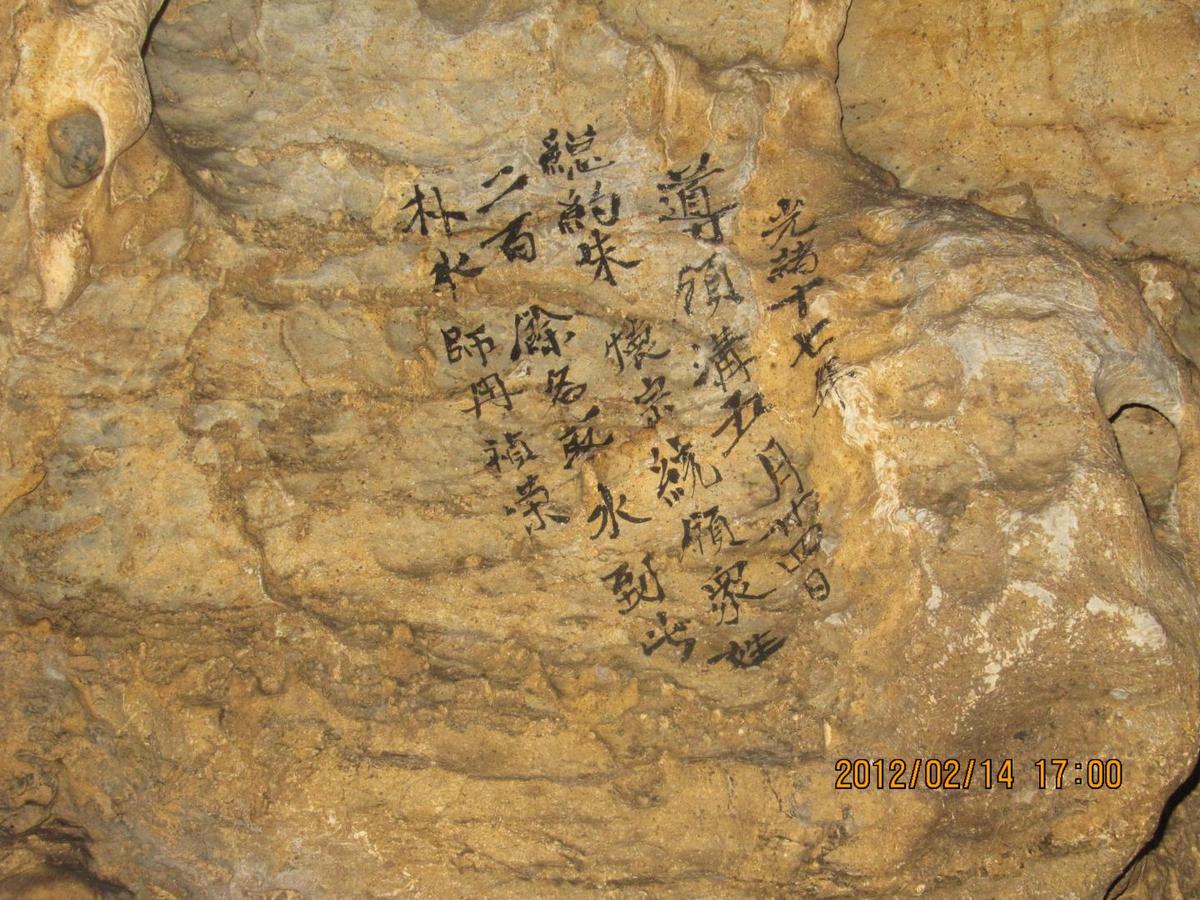 光緒十七年
導須溝五月廿四日
總約朱懷宗統領衆姓
二百餘名祈水到此
朴水師冉禎榮
2012/02/14 17:00